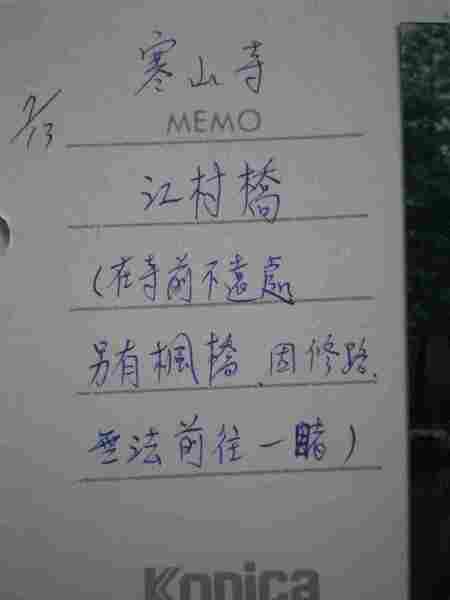 寒山寺
7/13
MEMO
江村橋
(在寺前不遠處
另有楓橋.因修路.
無法前往一睹)
Konica